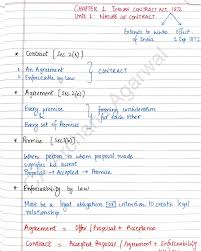 CHAPTER 1: INDIAN CONTRACT ACT, 1872
UNIT 1: NATURE OF CONTRACT
Extends to whole of India
Effect
1 Sep 1872
* Contract [Sec 2(h)]
1. An Agreement
2. Enforceable by law
CONTRACT
* Agreement [Sec 2(e)]
Every promise
Every set of Promises
forming consideration
for each other
* Promise [Sec 2(b)]
When person to whom proposal made
signifies his assent
Proposal → Accepted → Promise
* Enforceability by law
Must be a legal obligation OR intention to create legal
relationship
Agreement = Offer / Proposal + Acceptance
Contract = Accepted Proposal / Agreement + Enforceability
Agarwal